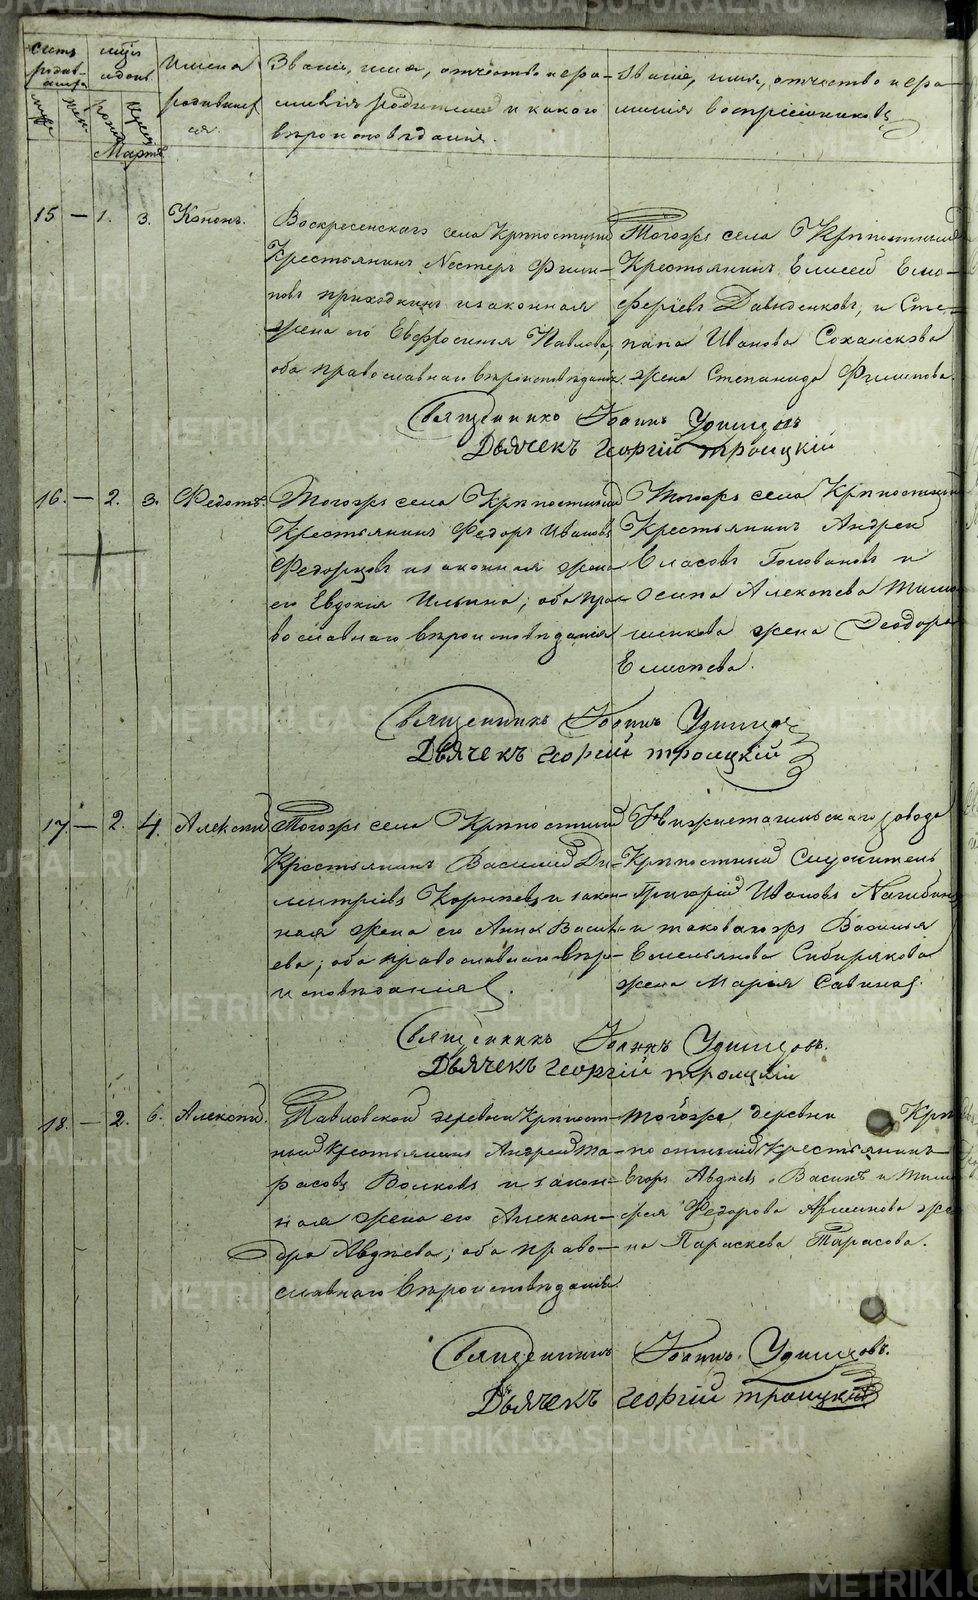 Счетъ родив-шихся
муж
жен
мѣсяцъ и день
рожд
крещ
Мартъ
Имена родившихся.
Званіе, имя, отчество и фа-
миліи родителей и какого
вѣроисповѣданія.
Званіе, имя, отчество и фа-
милія воспріемниковъ
15 — 1. 3. Кононъ.
Воскресенскаго села Крѣпостный
Крестьянинъ Несторъ Фили-
повъ и законная
жена его Евфросинія Павлова,
оба православнаго вѣроисповѣданія.
Тогожъ села Крѣпостный
Крестьянинъ Елисей Ели-
феріевъ Давыденковъ, и Сте-
пана Иванова
жена Степанида Филипова.
Священникъ Іоаннъ Удинцовъ
Дьячекъ Георгій Троицкій
16. — 2. 3. Федотъ.
Тогожъ села Крѣпостный
Крестьянинъ Федоръ Ивановъ
Федорцовъ и законная жена
его Евдокія Ильина; оба пра-
вославнаго вѣроисповѣданія
Тогожъ села Крѣпостный
Крестьянинъ Андрей
Власовъ Головановъ и
Осипа Алексѣева
жена Феодора
Елисѣева.
Священникъ Іоаннъ Удинцовъ
Дьячекъ Георгій Троицкій
17 — 2. 4. Алексій
Тогожъ села Крѣпостный
Крестьянинъ Василій Ди-
митріевъ и закон-
ная жена его Анна Василь-
ева; оба православнаго вѣро-
исповѣданія.
Нижнетагильскаго завода
Крѣпостный Служитель
Григорій Ивановъ Нагибинъ
и таковагожъ Василья
Емельянова Сибирякова
жена Марья Савина.
Священникъ Іоаннъ Удинцовъ.
Дьячекъ Георгій Троицкій
18. — 2. 6. Алексій.
Павловской деревни Крѣпост-
ный Крестьянинъ Андрей Та-
расовъ Волковъ и закон-
ная жена его Алексан-
дра Авдѣева; оба право-
славнаго вѣроисповѣданія
Тогожъ деревни Крѣ-
постный Крестьянинъ
Егоръ Авдѣевъ и
Федорова Аршинова же-
на Параскева Тарасова.
Священникъ Іоаннъ Удинцовъ.
Дьячекъ Георгій Троицкій
METRIKI.GASO-URAL.RU